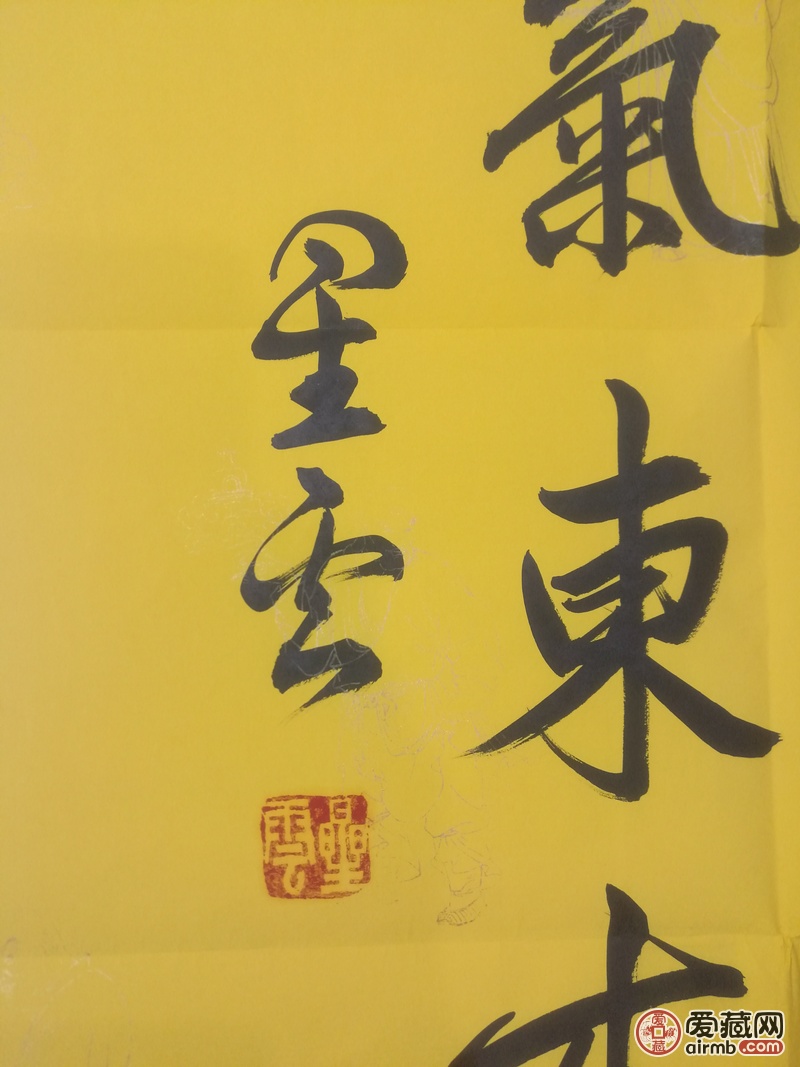 氣東
星云
曐雲
爱藏网
airmb.com